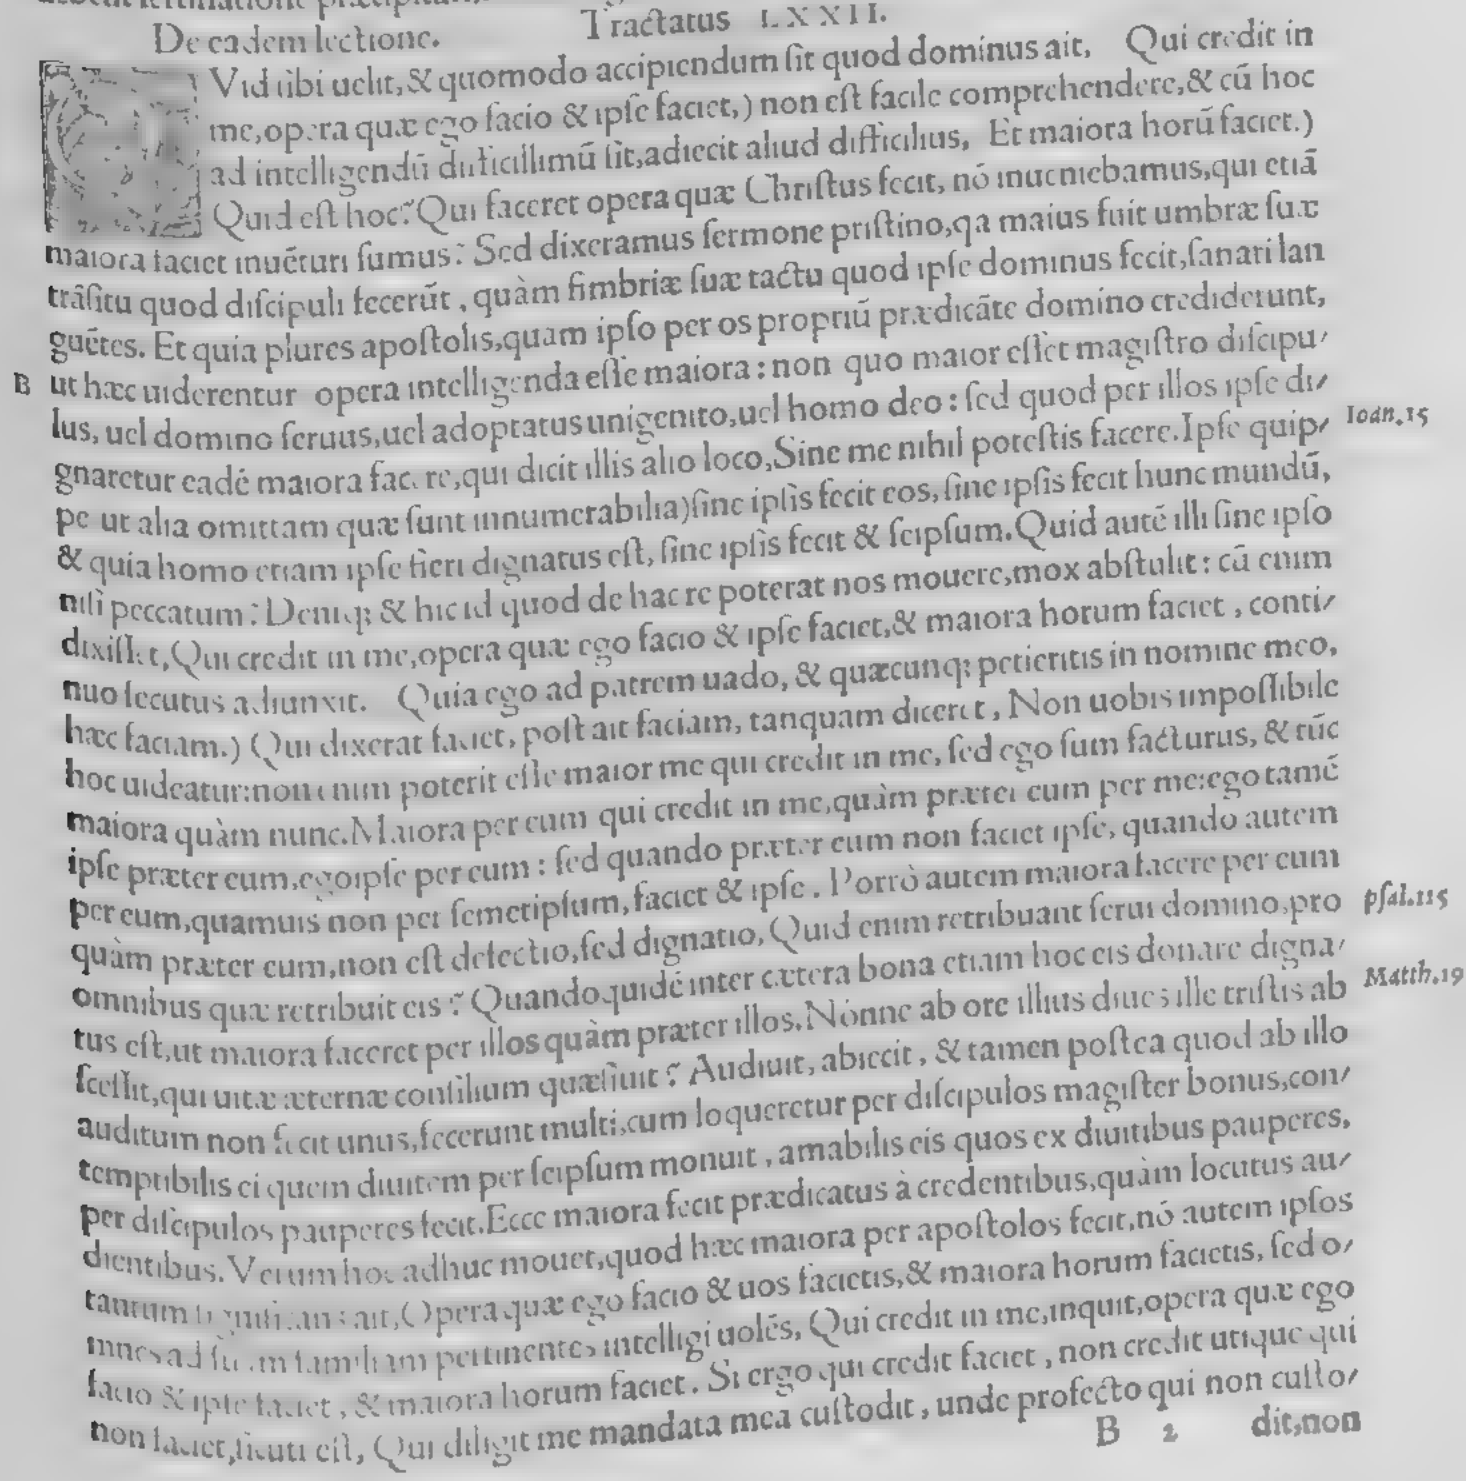 De eadem lectione. Tractatus LXXII.
Vid sibi uelit, & quomodo accipiendum sit quod dominus ait, Qui credit in
me, opera quæ ego facio & ipse faciet,) non est facile comprehendere, & cū hoc
ad intelligendū difficillimū sit, adiecit aliud difficilius, Et maiora horū faciet.)
Quid est hoc? Qui faceret opera quæ Christus fecit, nō inueniebamus, qui etiā
maiora faciet inuēturi sumus? Sed dixeramus sermone pristino, qa maius fuit umbræ suæ
trāsitu quod discipuli fecerūt, quàm fimbriæ suæ tactu quod ipse dominus fecit, sanari lan
guētes. Et quia plures apostolis, quam ipso per os propriū prædicāte domino crediderunt,
B ut hæc uiderentur opera intelligenda esse maiora: non quo maior esset magistro discipu/
lus, uel domino seruus, uel adoptatus unigenito, uel homo deo: sed quod per illos ipse di/
Ioan.15
gnaretur eadē maiora facere, qui dicit illis alio loco, Sine me nihil potestis facere. Ipse quip/
pe ut alia omittam quæ sunt innumerabilia) sine ipsis fecit eos, sine ipsis fecit hunc mundū,
& quia homo etiam ipse fieri dignatus est, sine ipsis fecit & seipsum. Quid autē illi sine ipso
nisi peccatum? Deniq; & hic id quod de hac re poterat nos mouere, mox abstulit: cū enim
dixisset, Qui credit in me, opera quæ ego facio & ipse faciet, & maiora horum faciet, conti/
nuo secutus adiunxit. Quia ego ad patrem uado, & quæcunq; petieritis in nomine meo,
hæc faciam.) Qui dixerat faciet, post ait faciam, tanquam diceret, Non uobis impossibile
hoc uideatur: non enim poterit esse maior me qui credit in me, sed ego sum facturus, & tūc
maiora quàm nunc. Maiora per eum qui credit in me, quàm præter eum per me: ego tamē
ipse præter eum, ego ipse per eum: sed quando præter eum non faciet ipse, quando autem
per eum, quamuis non per semetipsum, faciet & ipse. Porrò autem maiora facere per eum
quàm præter eum, non est defectio, sed dignatio. Quid enim retribuant serui domino, pro
psal.115
omnibus quæ retribuit eis? Quandoquidē inter cætera bona etiam hoc eis donare digna/
tus est, ut maiora faceret per illos quàm præter illos. Nónne ab ore illius diues ille tristis ab
Matth.19
scessit, qui uitæ æternæ consilium quæsiuit? Audiuit, abiecit, & tamen postea quod ab illo
auditum non fecit unus, fecerunt multi, cum loqueretur per discipulos magister bonus, con/
temptibilis ei quem diuitem per seipsum monuit, amabilis eis quos ex diuitibus pauperes,
per discipulos pauperes fecit. Ecce maiora fecit prædicatus à credentibus, quàm locutus au/
dientibus. Verum hoc adhuc mouet, quod hæc maiora per apostolos fecit, nō autem ipsos
tantum significans ait, Opera quæ ego facio & uos facietis, & maiora horum facietis, sed o/
mnes ad suam familiam pertinentes intelligi uolēs, Qui credit in me, inquit, opera quæ ego
facio & ipse faciet, & maiora horum faciet. Si ergo qui credit faciet, non credit utique qui
non faciet, sicuti est, Qui diligit me mandata mea custodit, unde profecto qui non custo/
B 2 dit, non